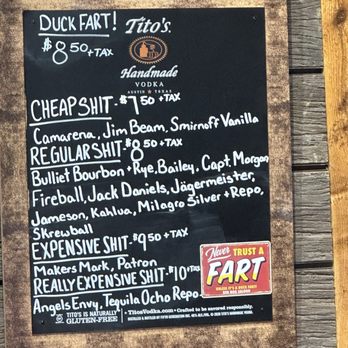 DUCK FART!
$8.50 + TAX
Tito's®
Handmade
VODKA
AUSTIN ★ TEXAS
CHEAP SHIT-$7.50 + TAX
Camarena, Jim Beam, Smirnoff Vanilla
REGULAR SHIT-$8.50 + TAX
Bulliet Bourbon + Rye, Bailey, Capt. Morgan
Fireball, Jack Daniels, Jägermeister,
Jameson, Kahlua, Milagro Silver + Repo,
Skrewball
EXPENSIVE SHIT-$9.50 + TAX
Makers Mark, Patron
REALLY EXPENSIVE SHIT-$10 + TAX
Angels Envy, Tequila Ocho Repo
Never TRUST A
FART
UNLESS IT'S A DUCK FART!
TITO'S IS NATURALLY
GLUTEN-FREE
TitosVodka.com • Crafted to be savored responsibly.